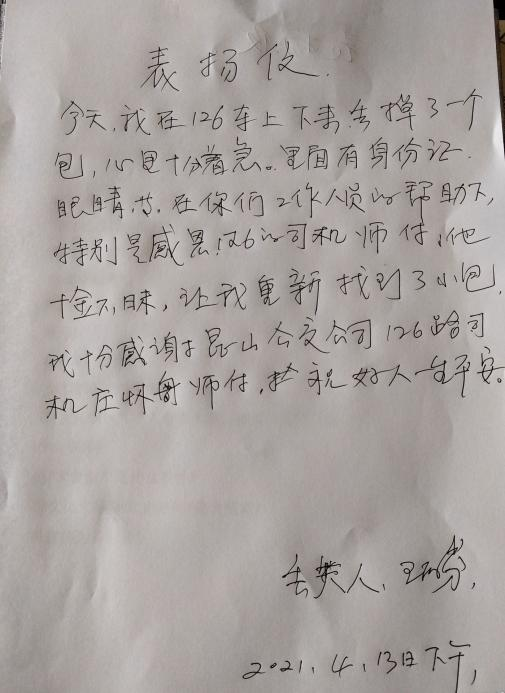 表扬仪.
今天,我在126车上下来,丢掉了一个
包,心里十分着急。里面有身份证.
眼睛等.在你们工作人员的帮助下,
特别是感恩126的司机师付,他
十金不昧,让我重新找到了小包,
我十分感谢 昆山公交公司126路司
机庄怀 师付,祝好人一生平安。
丢失人,王 芬,
2021.4.13日下午,